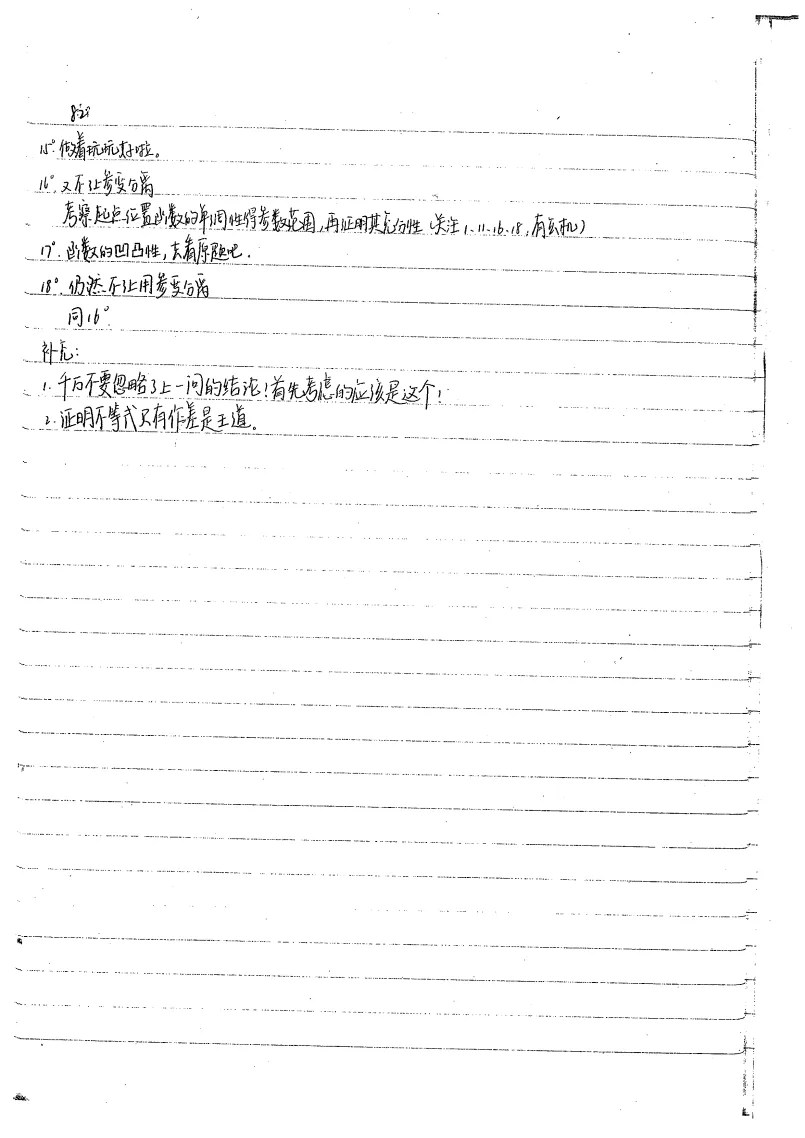 15°. 做着玩玩好啦。
16°. 又不让参变分离
考察起点位置函数的单调性得参数范围,再证明其充分性(关注1.11.16.18,有玄机)
17°. 函数的凹凸性,去看原题吧.
18°. 仍然不让用参变分离
同16°.
补充:
1. 千万不要忽略了上一问的结论!首先考虑的应该是这个!
2. 证明不等式只有作差是王道。